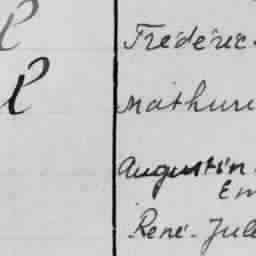 l Frédéric.
l Mathuri
Augustin.
Em
René-Jule